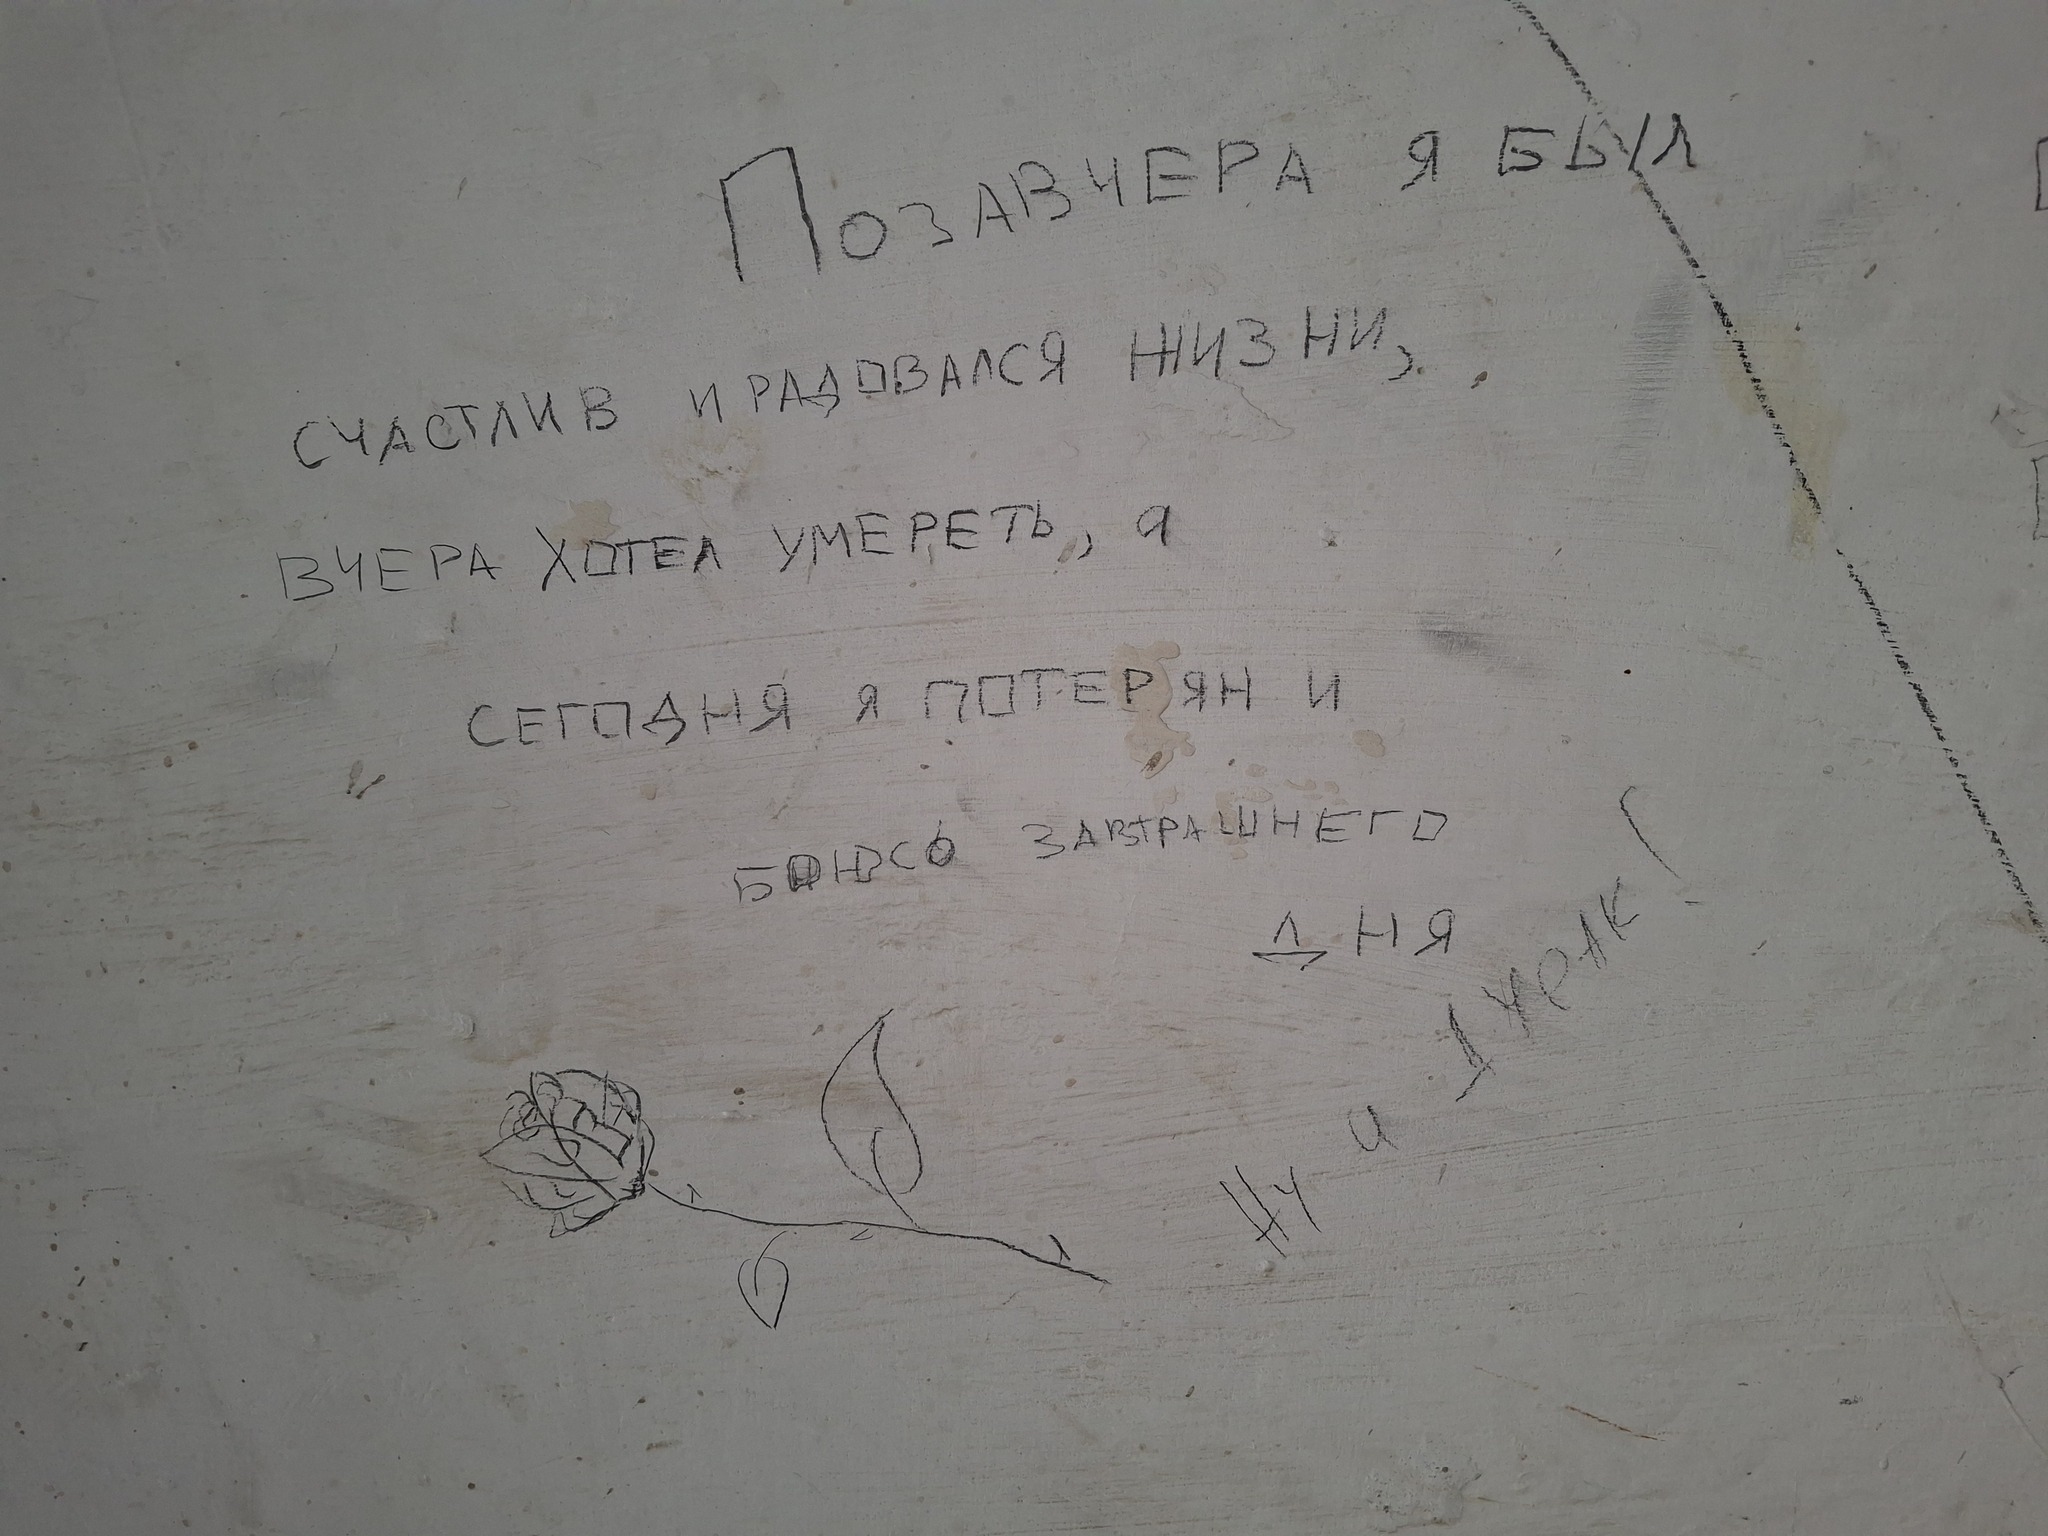 Позавчера я был
счастлив и радовался жизни,
вчера хотел умереть, а
сегодня я потерян и
боюсь завтрашнего
дня
Ну и дурак!